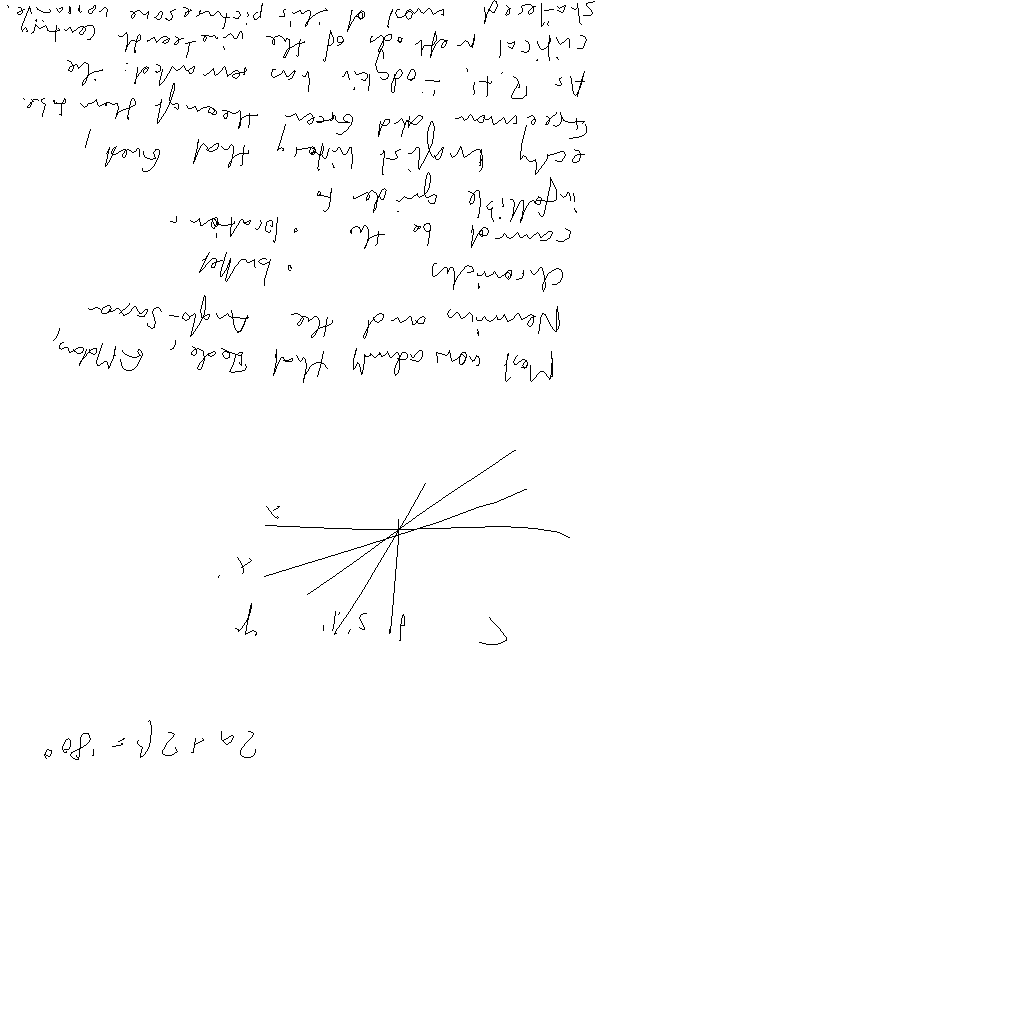 2α + 2β = 180°
Most now admit that Bede, Gildas,
Nennius and the Anglo-Saxon
Chronicles • buffet
cannot be the • location
infallible guides to
early English history that Guest,
Freeman and Green thought them to be.
As R.H. Hodgkin has remarked: the
critical methods of the nineteenth century
shattered most of this picturesque narrative.